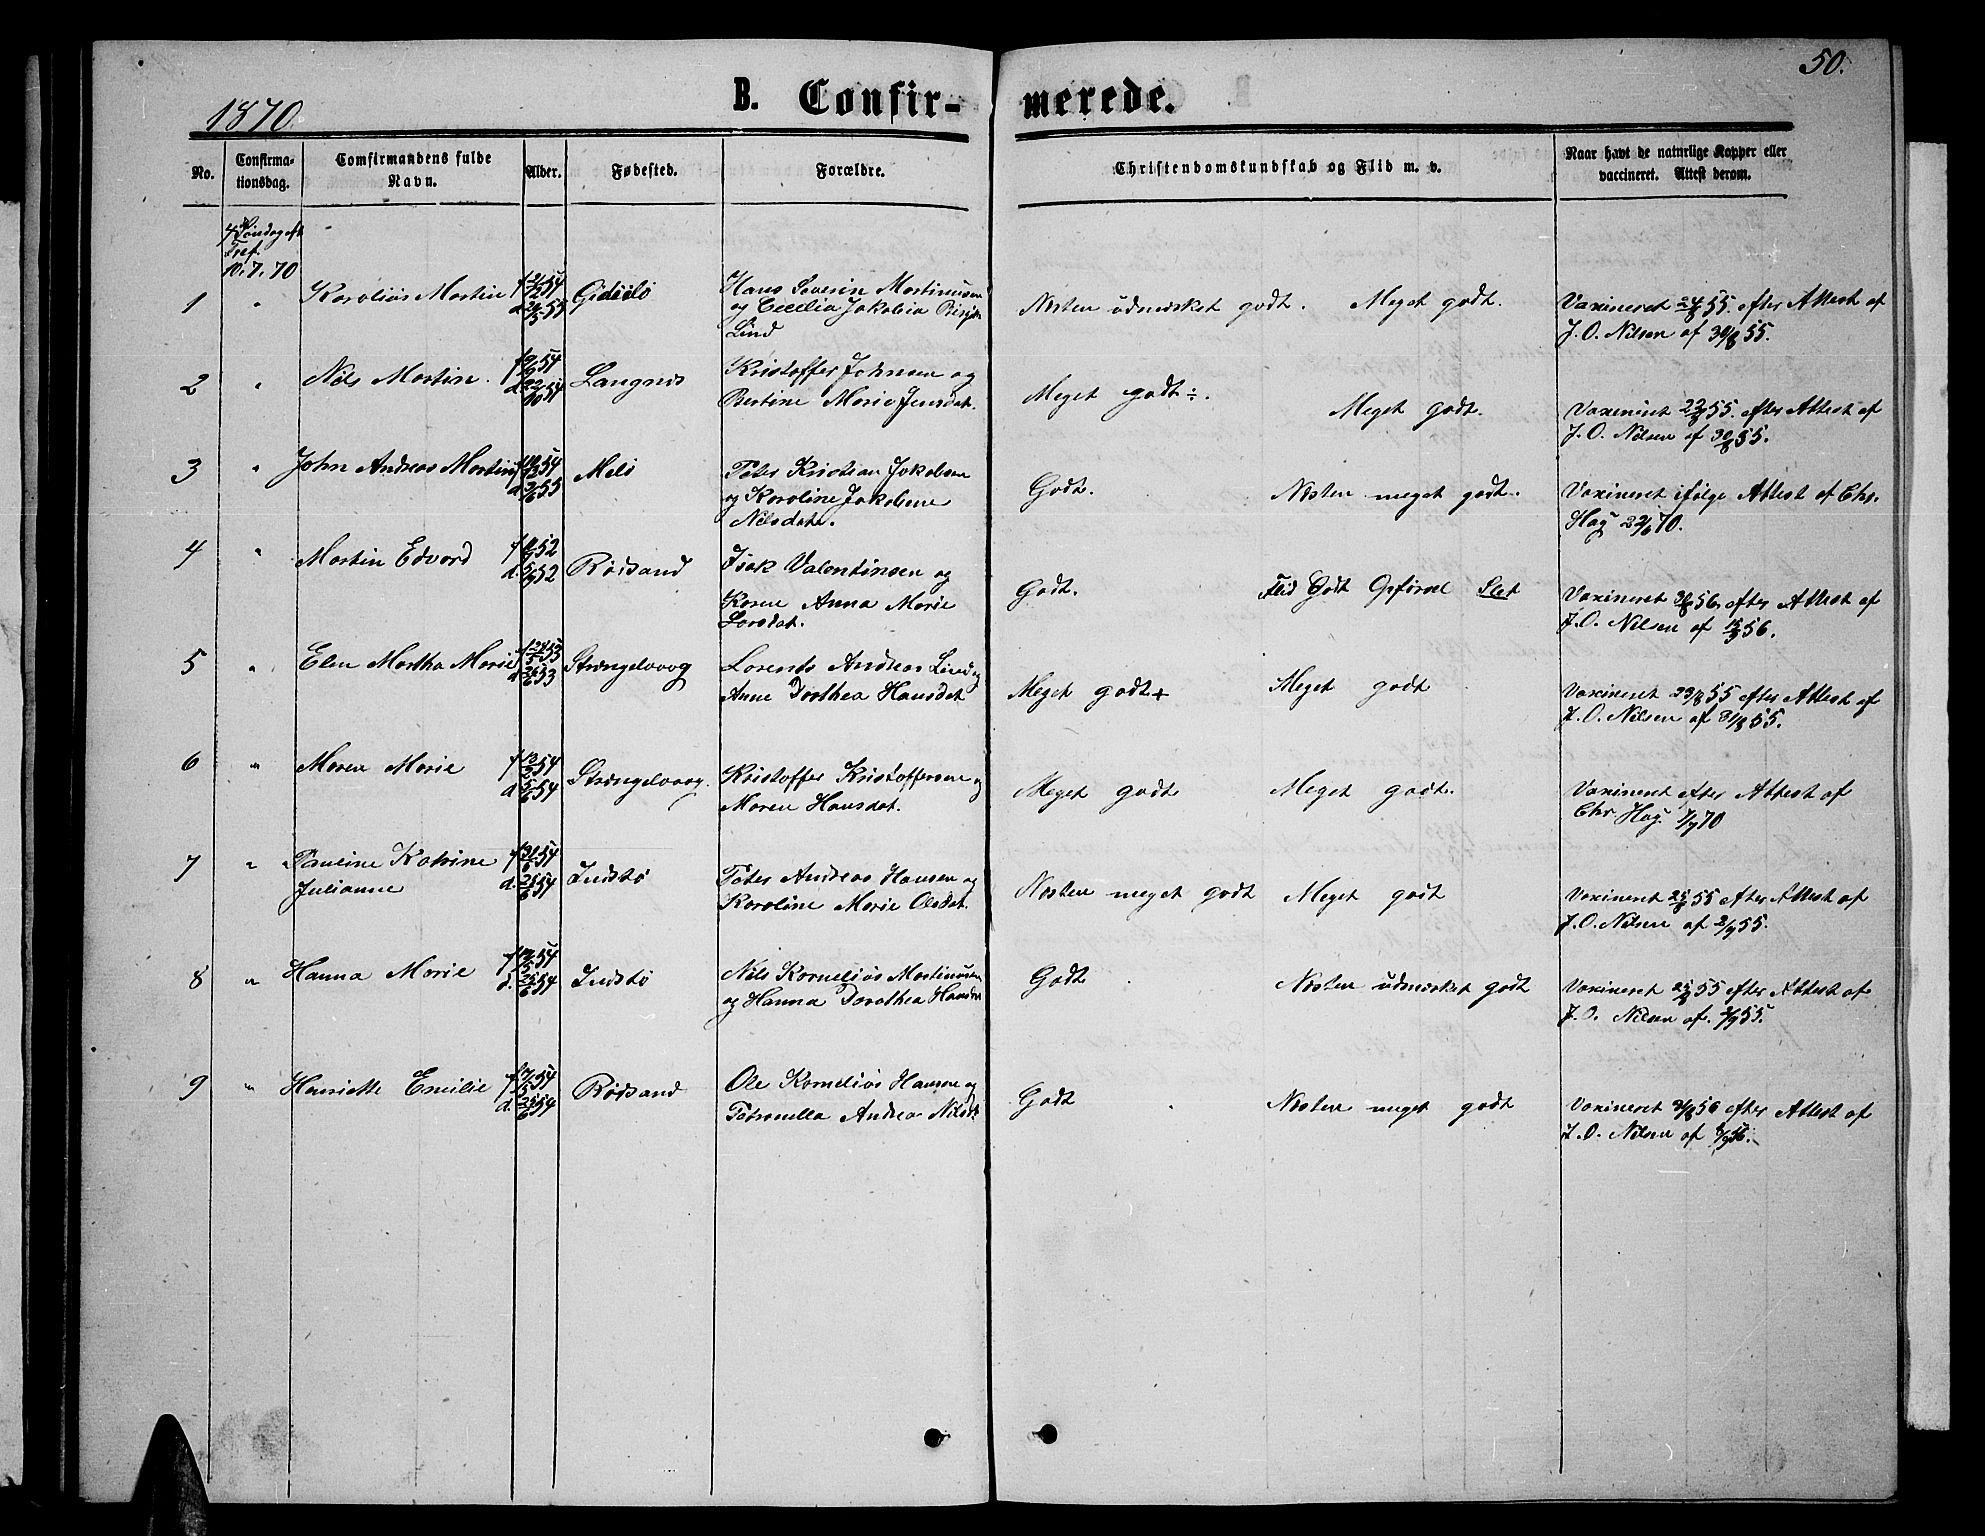 50.
1870.
B. Confir-
merede.
No.
Confirma-
tionsdag.
Comfirmandens fulde
Navn.
Alder.
Fødested.
Forældre.
Christendomskundskab og Flid m. v.
Naar havt de naturlige Kopper eller
vaccineret. Attest derom.
Søndag eft
Tref.
10. 7. 70
1 " Karoliüs Martin Gidslö Hans Severin Martinusen
og Cecilia Jakobia
Lind
Næsten üdmærket godt. Meget godt. Vaxineret 24/8 55. efter Attest af
J. O. Nilsen af 30/8 55.
2 " Nils Martin. Langnes Kristoffer Johnsen og
Bertine Marie Jensdat.
Meget godt ÷. Meget godt. Vaxineret 22/8 55. efter Attest af
J. O. Nilsen af 30/8 55.
3 " John Andreas Martin Melö Peter Kristian Jakobsen
og Karoline Jakobine
Nilsdat.
Godt. Næsten meget godt. Vaxineret ifölge Attest af Chr.
Hag 22/6 70.
4 " Martin Edvard Rödsand Isak Valentinsen og
Karen Anna Marie
Larsdat.
Godt. Flid Godt Opförsel Slet Vaxineret efter Attest af
J. O. Nilsen af 56.
5 " Elen Martha Marie Strengelvaag Lorents Andreas Lind og
Anne Dorthea Hansdat
Meget godt + Meget godt Vaxineret 23/8 55 efter Attest af
J. O. Nilsen af 31/8 55.
6 " Maren Marie Strengelvaag. Kristoffer Kristoffersen og
Maren Hansdat.
Meget godt Meget godt. Vaxineret efter Attest af
Chr. Hag. 1/7 70
7 " Pauline Katrine
Julianne
Indstö Peter Andreas Hansen og
Karoline Marie Olsdat.
Næsten meget godt Meget godt Vaxineret 25/8 55 efter Attest af
J. O. Nilsen af 2/9 55.
8 " Hanna Marie Indstö Nils Korneliüs Martinusen
og Hanna Dorothea
Godt Næsten üdmærket godt Vaxineret 25/8 55 efter Attest af
J. O. Nilsen af 2/9 55.
9 " Henriette Emilie Rödsand Ole Korneliüs Hansen og
Petronella Andrea Nilsdt
Godt Næsten meget godt Vaxineret 56 efter Attest af
J. O. Nilsen af